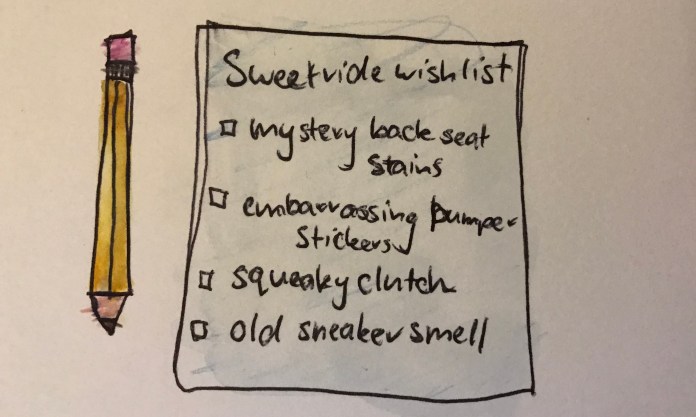 Sweet ride wish list
mystery back seat
stains
embarrassing bumper
stickers
squeaky clutch
old sneaker smell